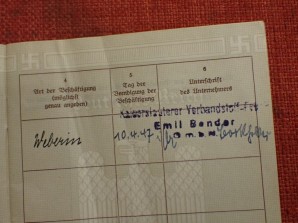 4
Art der Beschäftigung
(möglichst
genau angeben)
5
Tag der
Beendigung der
Beschäftigung
6
Unterschrift
des Unternehmers
Weberin
10.4.47
Kaiserslauterer Verbandstoff-Fbr.
Emil Bender
G.m.b.H.